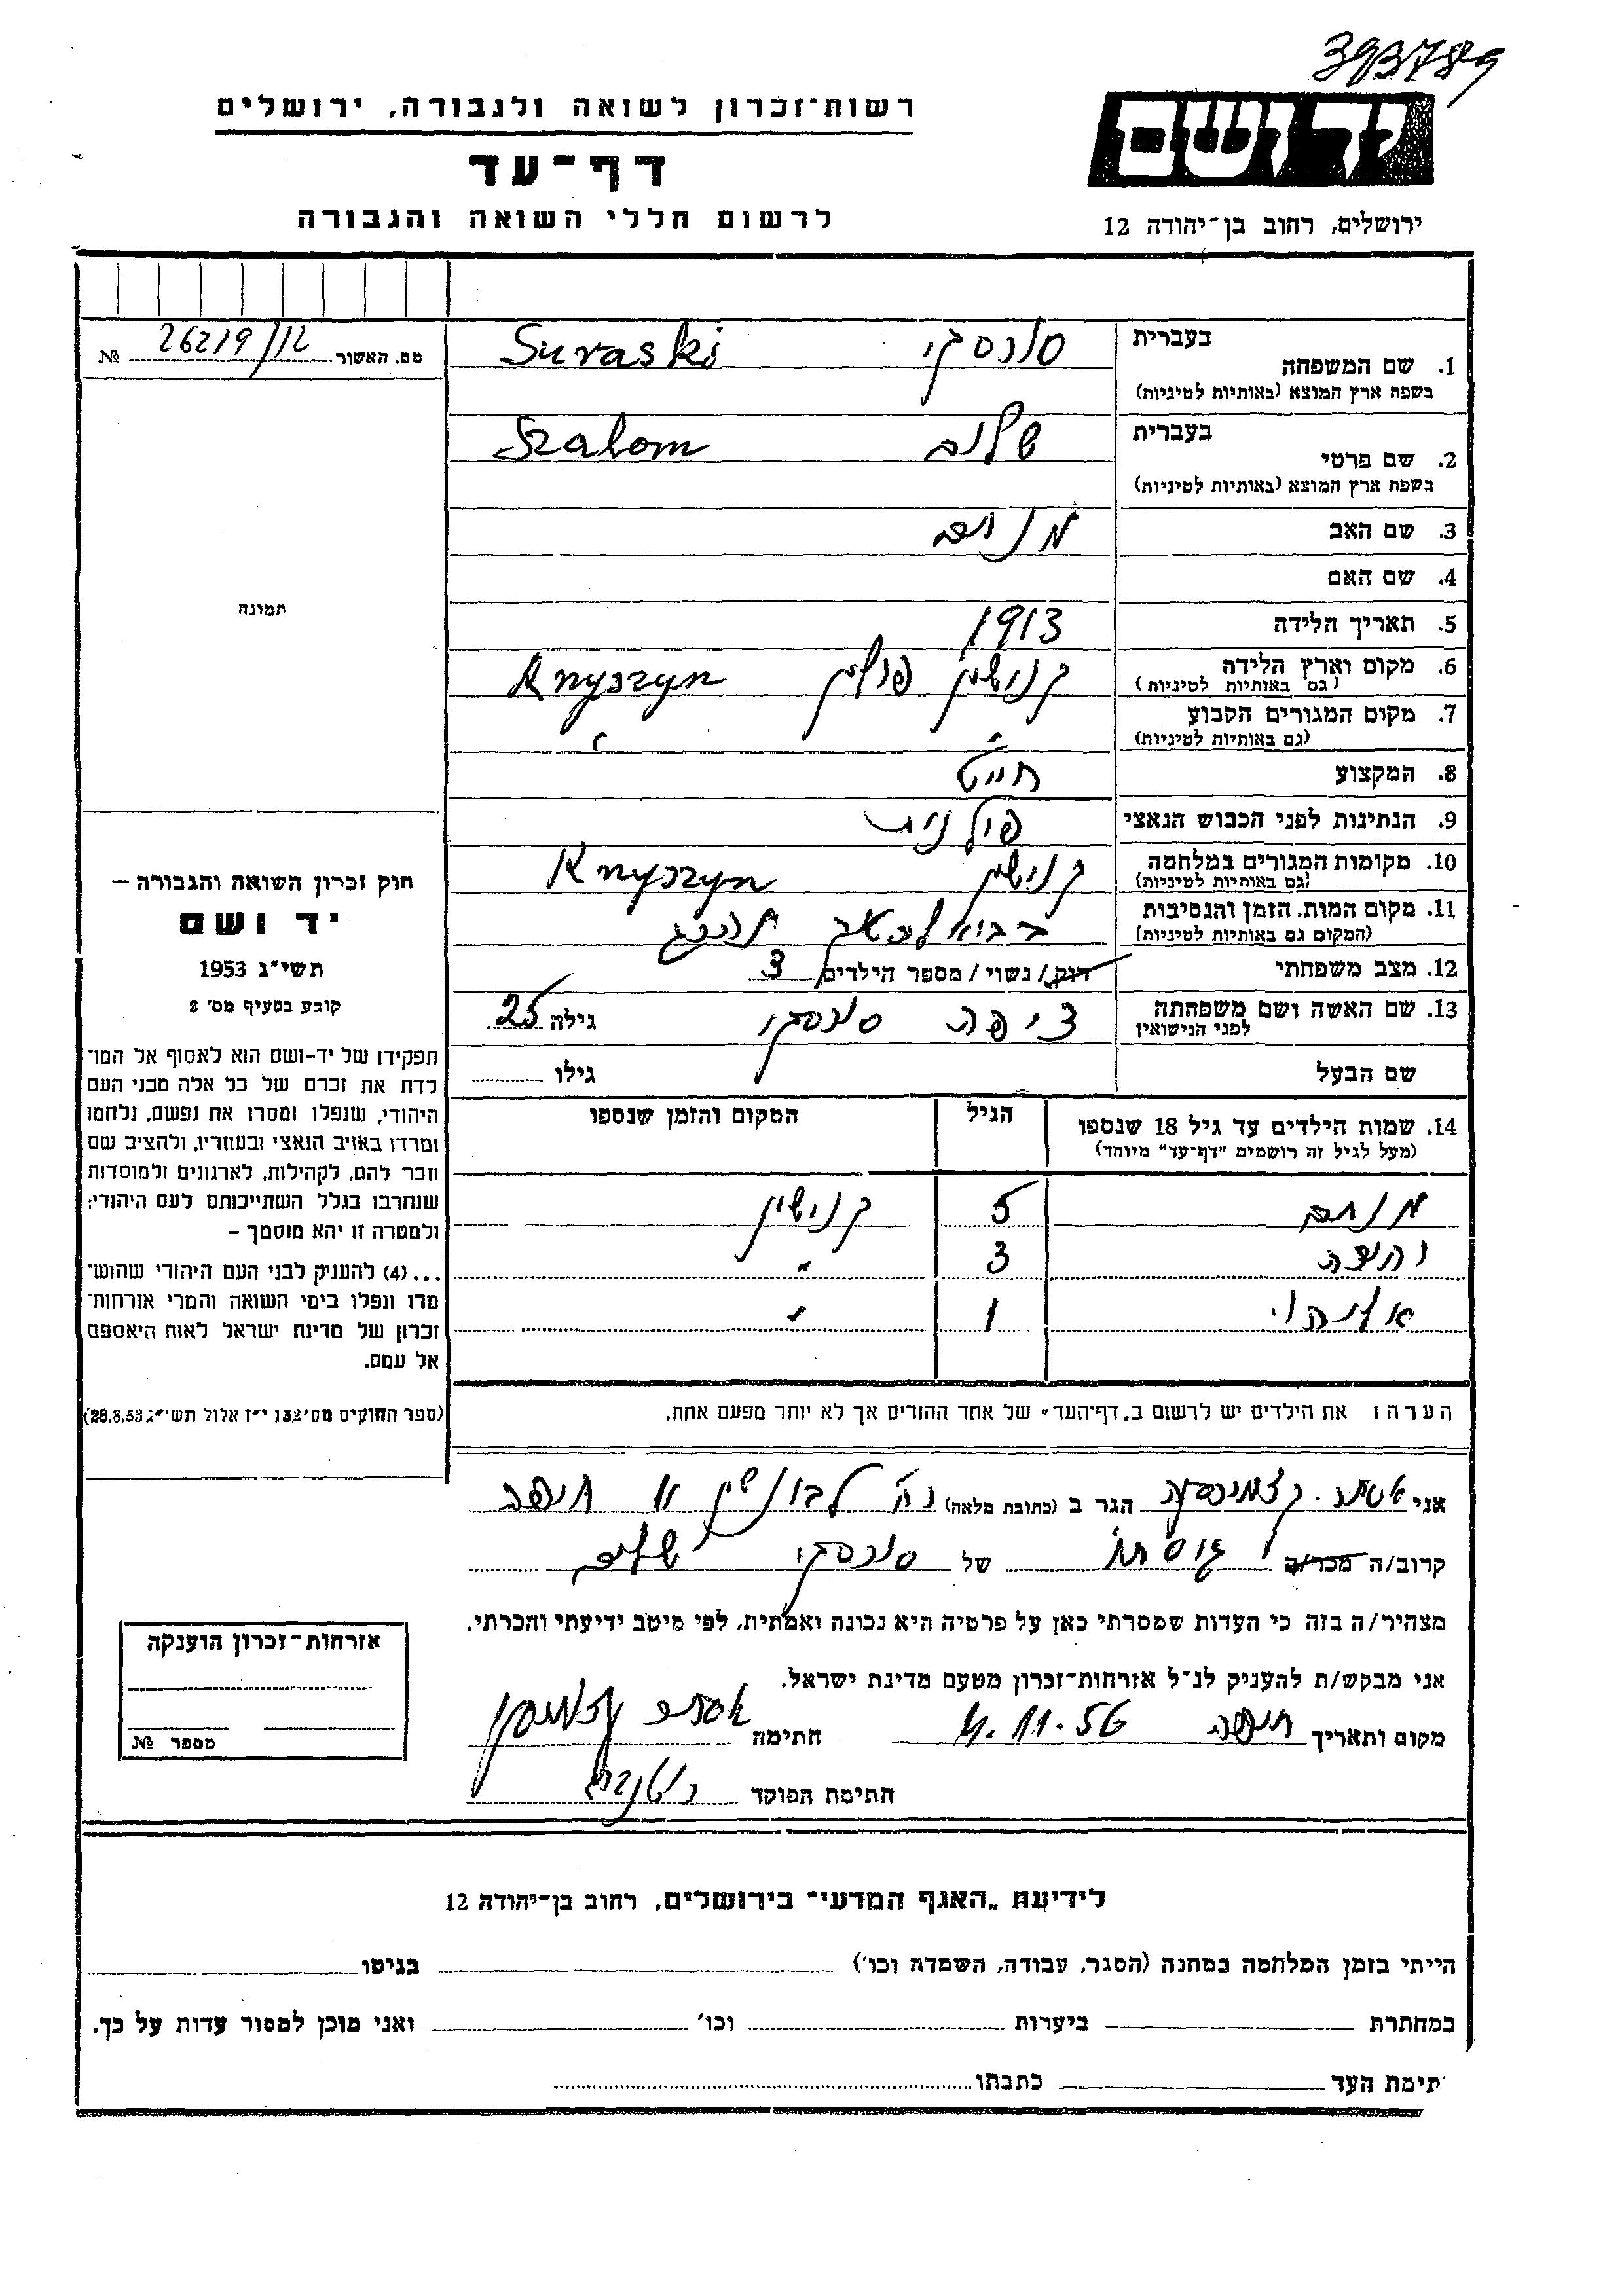 393789
רשות־זכרון לשואה ולגבורה, ירושלים
ידושם
דף־עד
לרשום חללי השואה והגבורה
ירושלים, רחוב בן־יהודה 12
מס. האשור 26219/12 №
1. שם המשפחה בעברית סורסקי Suraski
בשפת ארץ המוצא (באותיות לטיניות)
2. שם פרטי בעברית שלום Szalom
בשפת ארץ המוצא (באותיות לטיניות)
3. שם האב מנחם
4. שם האם
תמונה
5. תאריך הלידה 1913
6. מקום וארץ הלידה קנישין פולין Knyszyn
(גם באותיות לטיניות)
7. מקום המגורים הקבוע " "
(גם באותיות לטיניות)
8. המקצוע חייט
9. הנתינות לפני הכבוש הנאצי פולנית
10. מקומות המגורים במלחמה קנישין Knyszyn
(גם באותיות לטיניות)
11. מקום המות, הזמן והנסיבות
(המקום גם באותיות לטיניות)
12. מצב משפחתי רווק / נשוי / מספר הילדים 3
13. שם האשה ושם משפחתה לפני הנישואין ציפה סורסקי גילה 25
שם הבעל גילו
14. שמות הילדים עד גיל 18 שנספו הגיל המקום והזמן שנספו
(מעל לגיל זה רושמים "דף־עד" מיוחד)
מנחם 5 קנישין
3 "
1 "
הערה: את הילדים יש לרשום ב„דף־העד" של אחד ההורים אך לא יותר מפעם אחת.
חוק זכרון השואה והגבורה –
יד ושם
תשי"ג 1953
קובע בסעיף מס' 2
תפקידו של יד-ושם הוא לאסוף אל המו־
לדת את זכרם של כל אלה מבני העם
היהודי, שנפלו ומסרו את נפשם, נלחמו
ומרדו באויב הנאצי ובעוזריו, ולהציב שם
וזכר להם, לקהילות, לארגונים ולמוסדות
שנחרבו בגלל השתייכותם לעם היהודי;
ולמטרה זו יהא מוסמך –
...(4) להעניק לבני העם היהודי שהוש־
מדו ונפלו בימי השואה והמרי אזרחות־
זכרון של מדינת ישראל לאות היאספם
אל עמם.
(ספר החוקים מס' 132 י"ז אלול תשי"ג 28.8.53)
אני אסתר הגר ב (כתובת מלאה) חיפה
קרוב/ה מכר/ה גיסתו של סורסקי שלום
מצהיר/ה בזה כי העדות שמסרתי כאן על פרטיה היא נכונה ואמתית, לפי מיטב ידיעתי והכרתי.
אני מבקש/ת להעניק לנ"ל אזרחות־זכרון מטעם מדינת ישראל.
מקום ותאריך חיפה 4.11.56 חתימה אסתר
חתימת הפוקד
אזרחות־זכרון הוענקה
מספר №
לידיעת „האגף המדעי" בירושלים, רחוב בן־יהודה 12
הייתי בזמן המלחמה במחנה (הסגר, עבודה, השמדה וכו') בגיטו
במחתרת ביערות וכו' ואני מוכן למסור עדות על כך.
תימת העד כתבתו